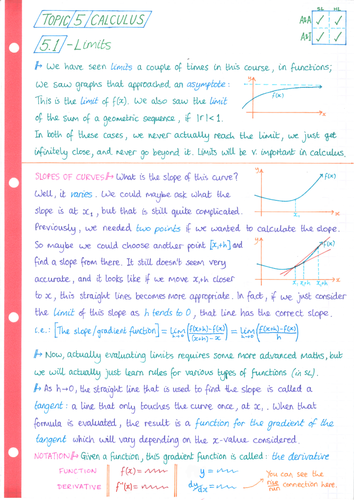 TOPIC 5 CALCULUS
SL HL
A&A ✓ ✓
A&I ✓ ✓
5.1 - Limits
We have seen limits a couple of times in this course, in functions;
we saw graphs that approached an asymptote:
This is the limit of f(x). We also saw the limit
of the sum of a geometric sequence, if |r|<1.
In both of these cases, we never actually reach the limit, we just get
infinitely close, and never go beyond it. Limits will be v. important in calculus.
y
f(x)
x
SLOPES OF CURVES What is the slope of this curve?
Well, it varies. We could maybe ask what the
slope is at x₁, but that is still quite complicated.
Previously, we needed two points if we wanted to calculate the slope.
So maybe we could choose another point [x₁+h] and
find a slope from there. It still doesn't seem very
accurate, and it looks like if we move x₁+h closer
to x₁ this straight lines becomes more appropriate. In fact, if we just consider
the limit of this slope as h tends to 0, that line has the correct slope.
y
f(x)
x₁
x
y
f(x)
x₁ x₁+h
x
i.e.: [The slope/gradient function] = lim h→0 (f(x+h)-f(x))/((x+h)-x) = lim h→0 (f(x+h)-f(x))/h
Now, actually evaluating limits requires some more advanced maths, but
we will actually just learn rules for various types of functions (in SL).
As h→0, the straight line that is used to find the slope is called a
tangent: a line that only touches the curve once, at x₁. When that
formula is evaluated, the result is a function for the gradient of the
tangent which will vary depending on the x-value considered.
NOTATION Given a function, this gradient function is called: the derivative
FUNCTION f(x)= y =
DERIVATIVE f'(x)= dy/dx =
You can see the
rise/run connection here.